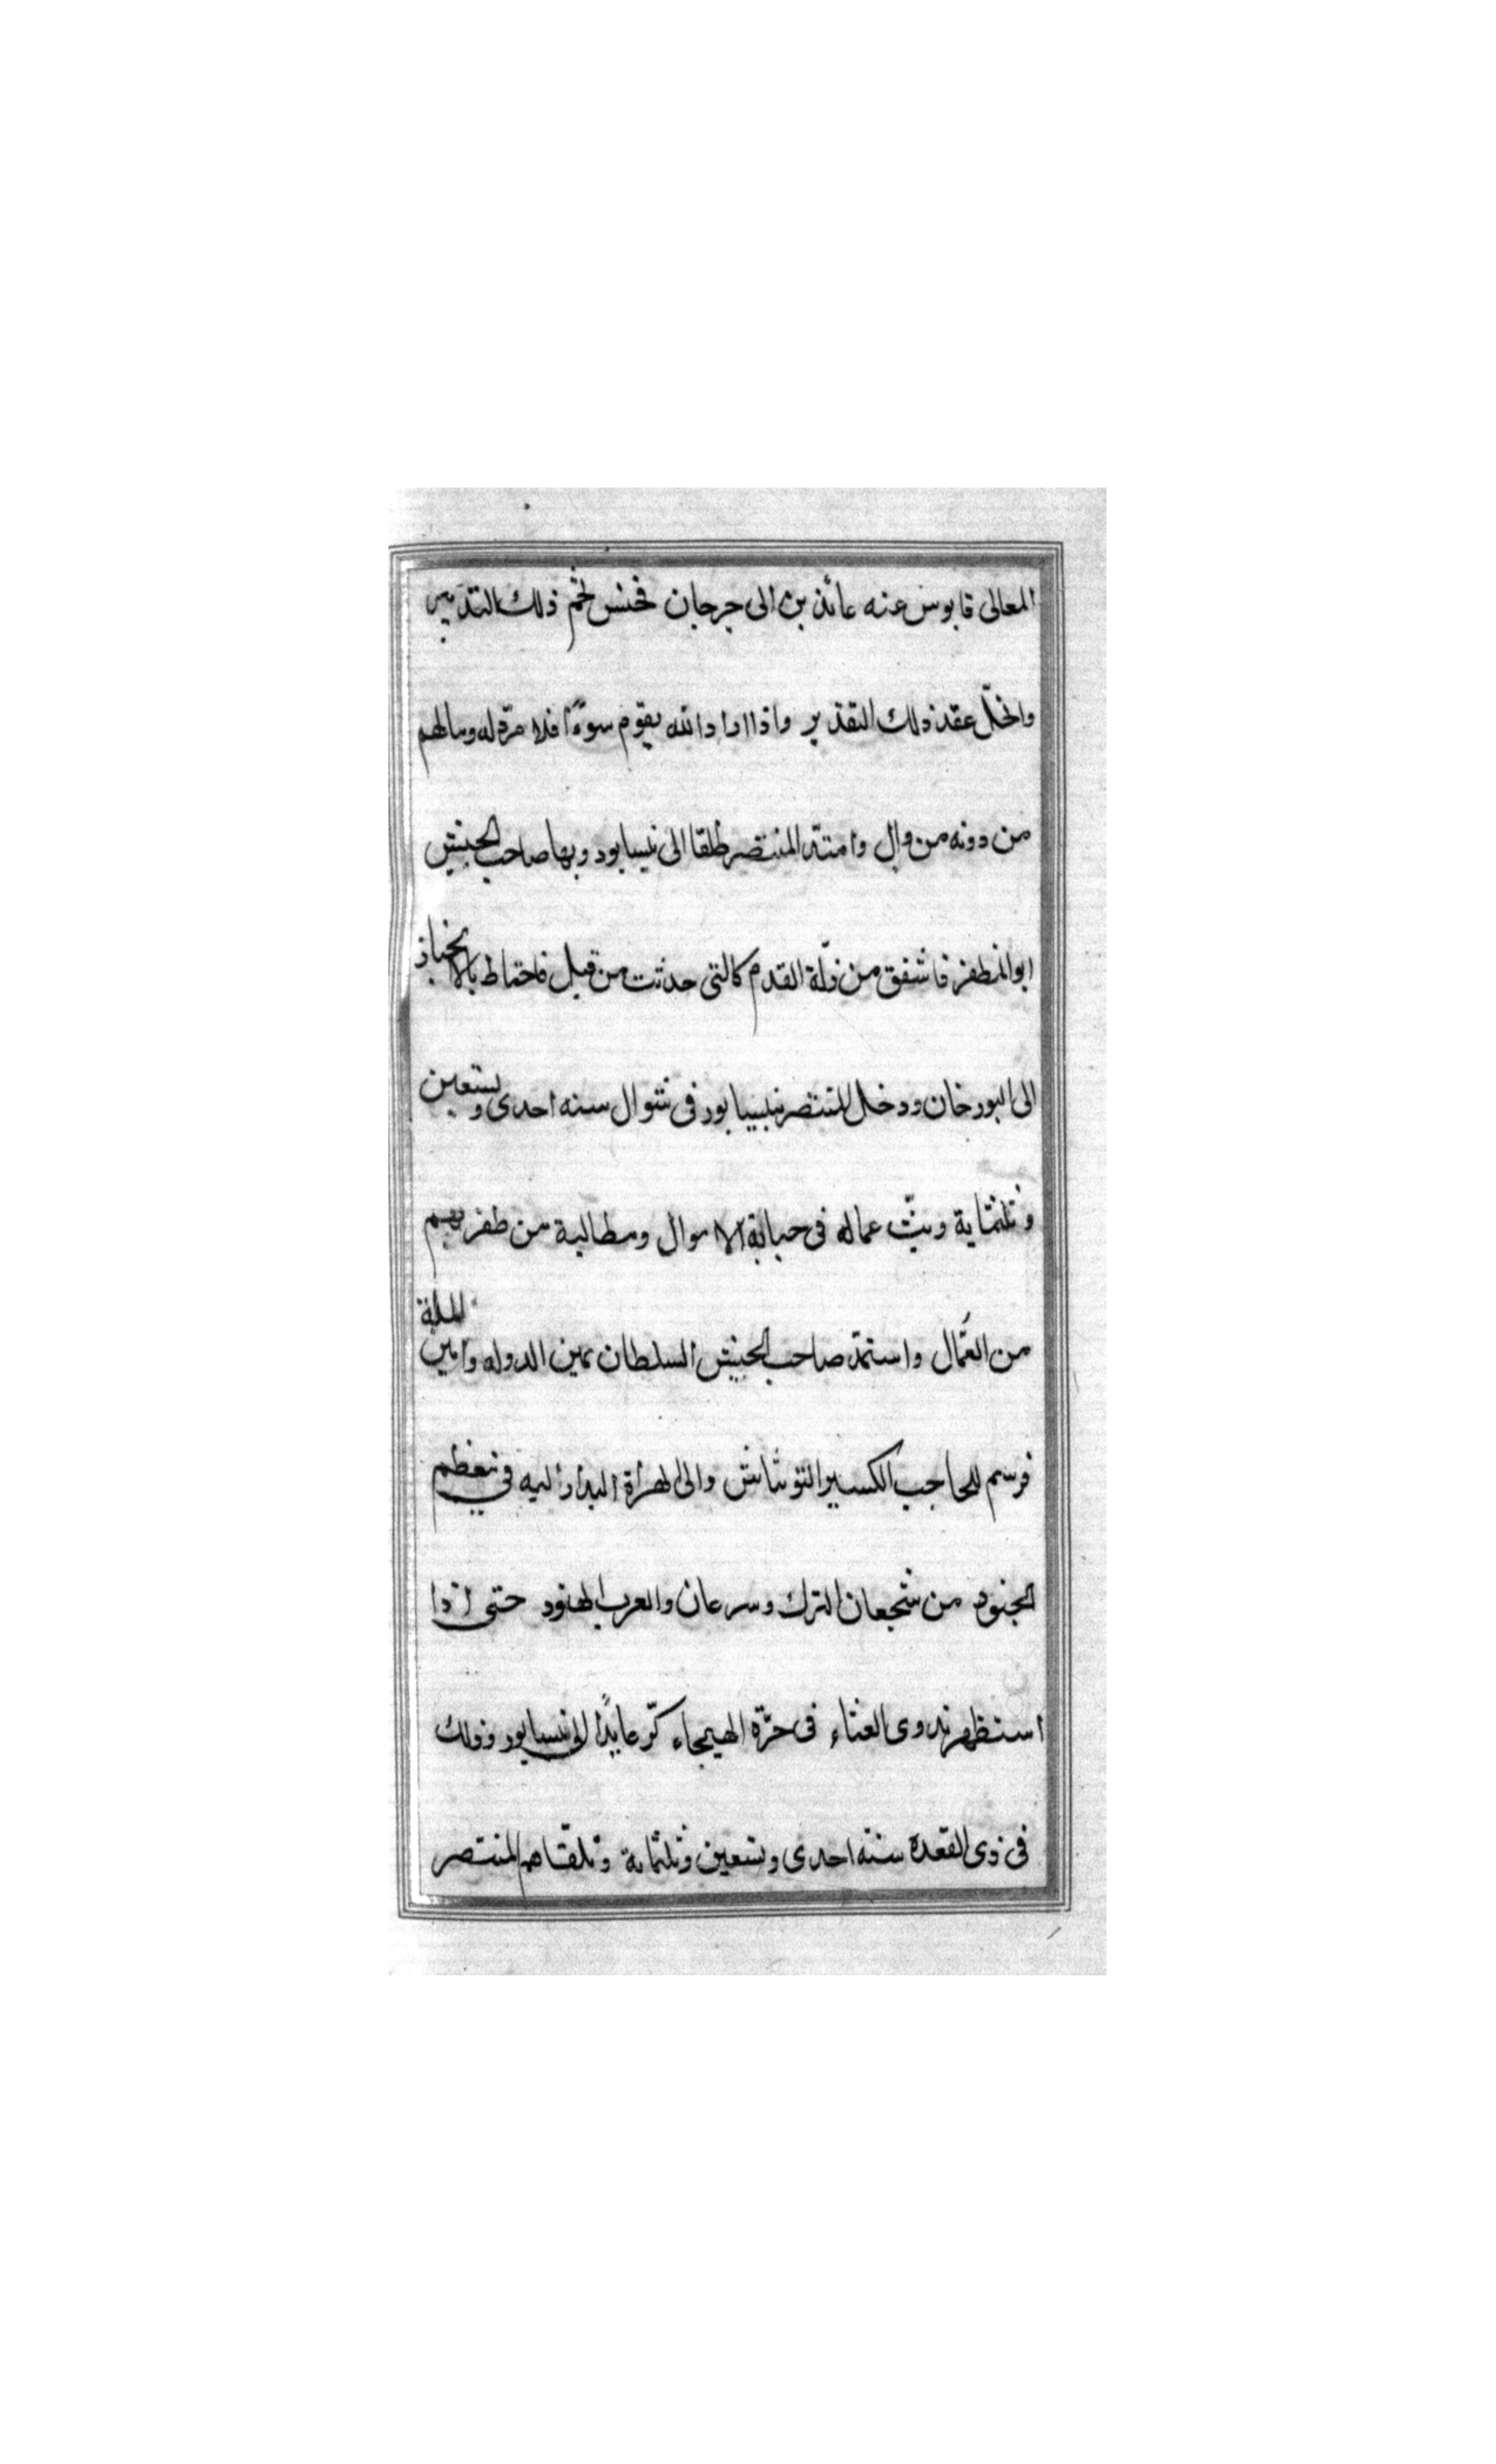 المعالى قابوس عنه عائذين الى جرجان فخنس نجم ذلك التدبير
وانحلّ عقد ذلك التقدير واذا اراد الله بقوم سوءًا فلا مردّ له ومالهم
من دونه من وال وامتدّ المنتصر طلقا الى نيسابور وبها صاحب الجيش
ابو المظفر فاشفق من زلّة القدم كالتى حدثت من قبل فاحتاط بالانحياز
الى البورخان ودخل المنتصر نيسابور فى شوال سنه احدى وتسعين
وثلثماية وبثّ عماله فى جباية الاموال ومطالبة من ظفر بهم
من العمّال واستمدّ صاحب الجيش السلطان يمين الدوله وامين الملة
فرسم للحاجب الكبير التونتاش والى هراة البدار اليه فى معظم
الجنود من شجعان الترك وسرعان والعرب الهنود حتى اذا
استظهر بذوى الغناء فى حرّة الهيجاء كرّ عايدًا الى نيسابور وذلك
فى ذى القعدة سنة احدى وتسعين وثلثماية وتلقّاهم المنتصر